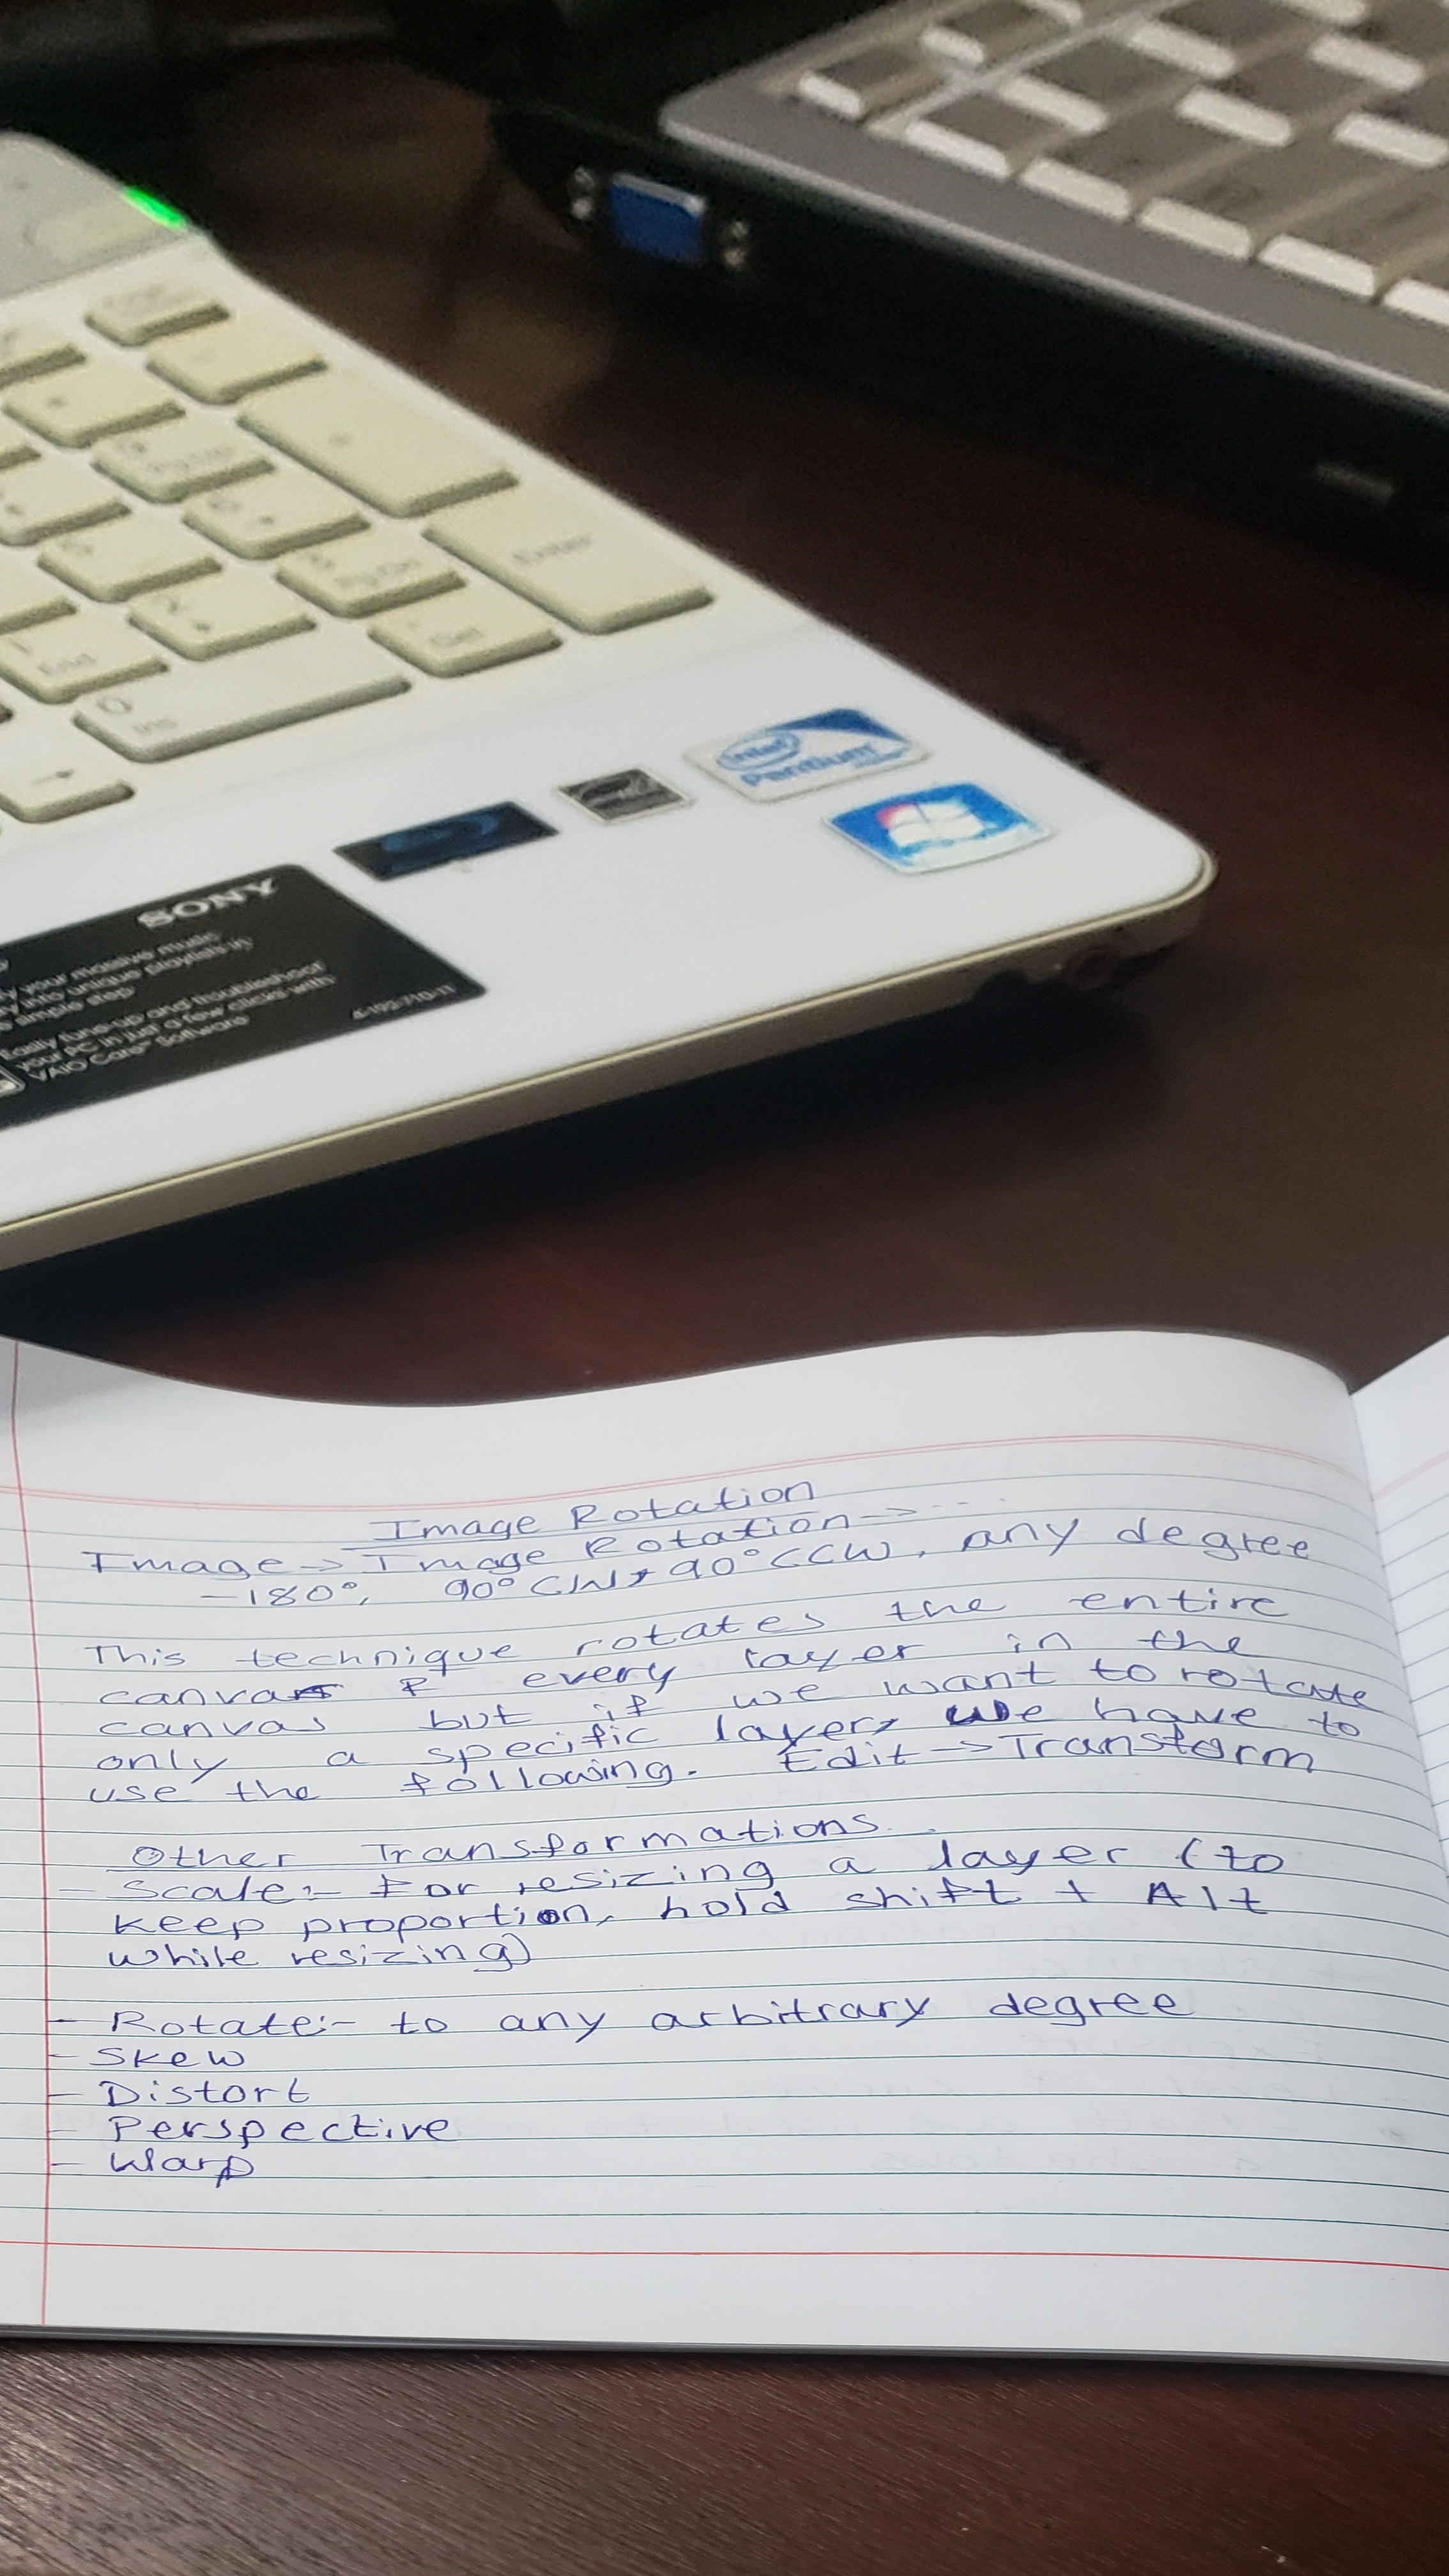 Enter
Del
End
0
Ins
intel
Pentium
SONY
your massive music
into unique playlists in
simple step
Easily tune-up and troubleshoot
your PC in just a few clicks with
VAIO Care™ Software
Image Rotation
Image -> Image Rotation -> ....
-180°, 90° CW, 90° CCW, any degree
This technique rotates the entire
canvas & every layer in the
canvas but if we want to rotate
only a specific layer, we have to
use the following. Edit -> Transform
Other Transformations.
- Scale:- For resizing a layer (to
keep proportion, hold shift + Alt
while resizing)
- Rotate:- to any arbitrary degree
- Skew
- Distort
- Perspective
- Warp